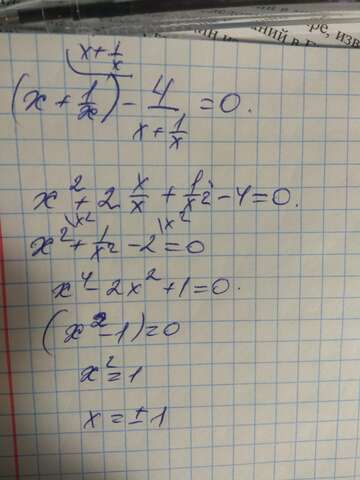 ре, изв
ний в Г
x + 1/x
(x + 1/x) - 4/(x + 1/x) = 0.
x² + 2 x/x + 1/x² - 4 = 0.
\x² \x²
x² + 1/x² - 2 = 0
x⁴ - 2x² + 1 = 0.
(x² - 1) = 0
x² = 1
x = ± 1